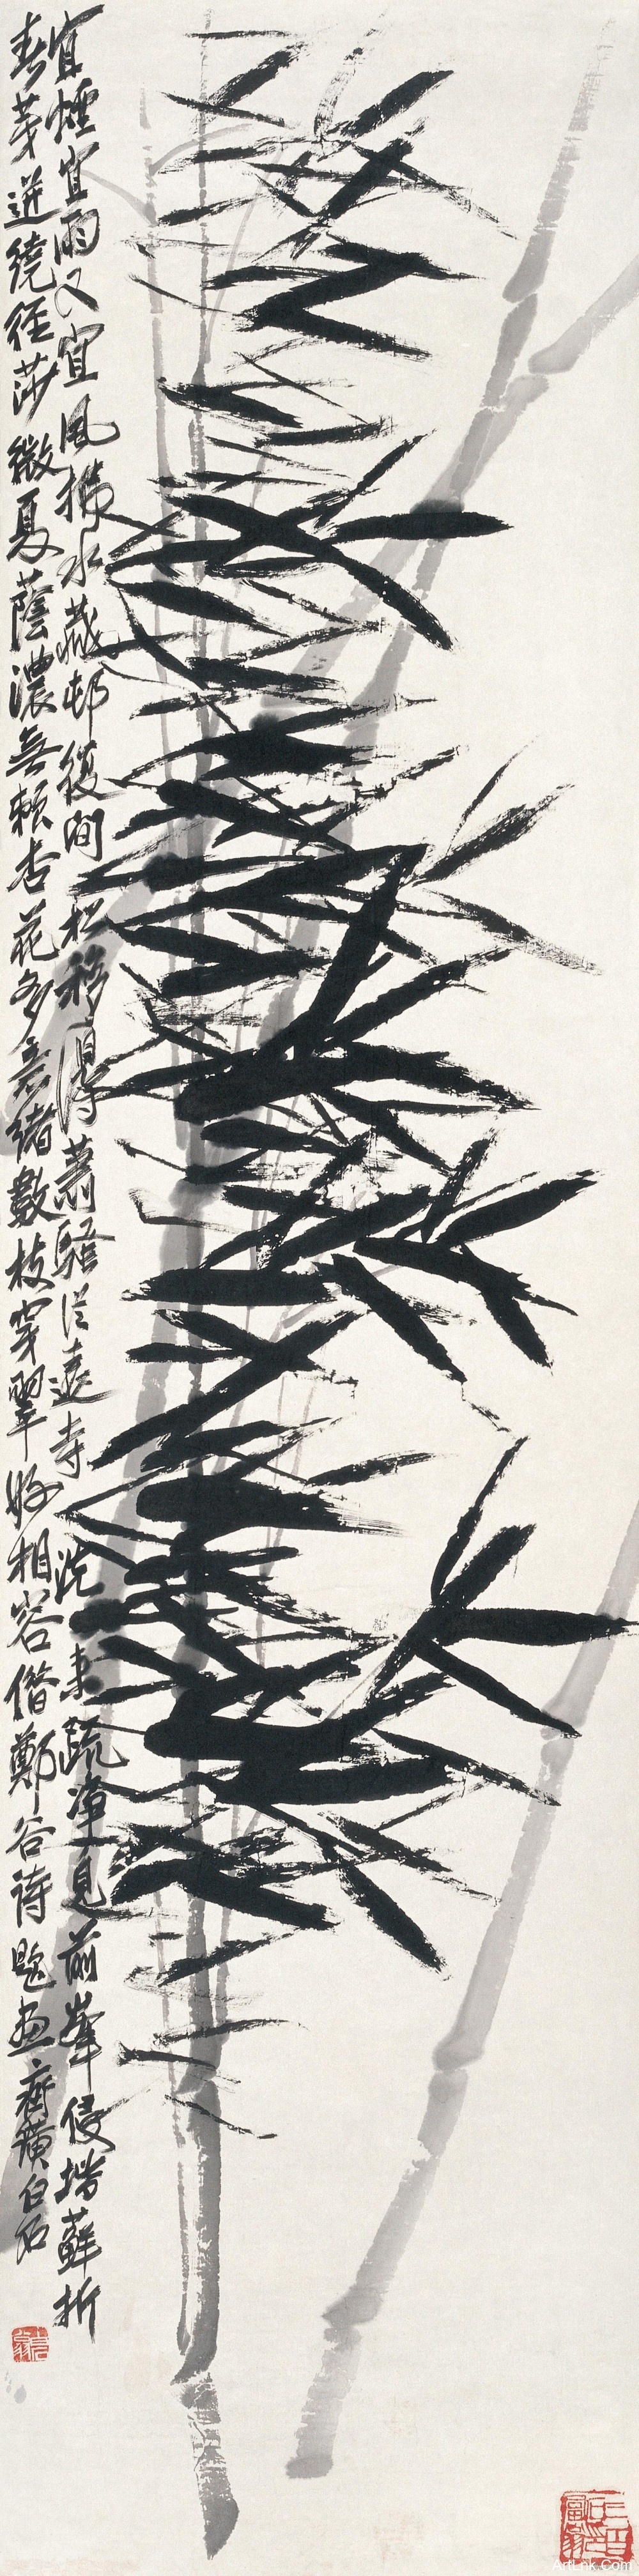 宜煙宜雨又宜風拂水藏邨復間松移得蕭騷從遠寺洗來疏淨見前峯侵堦蘚折
春芽迸繞徑莎微夏蔭濃無賴杏花多意緒數枝穿翠好相容借鄭谷詩題畫齊璜白石
三百石印富翁
ArtLnk.Com